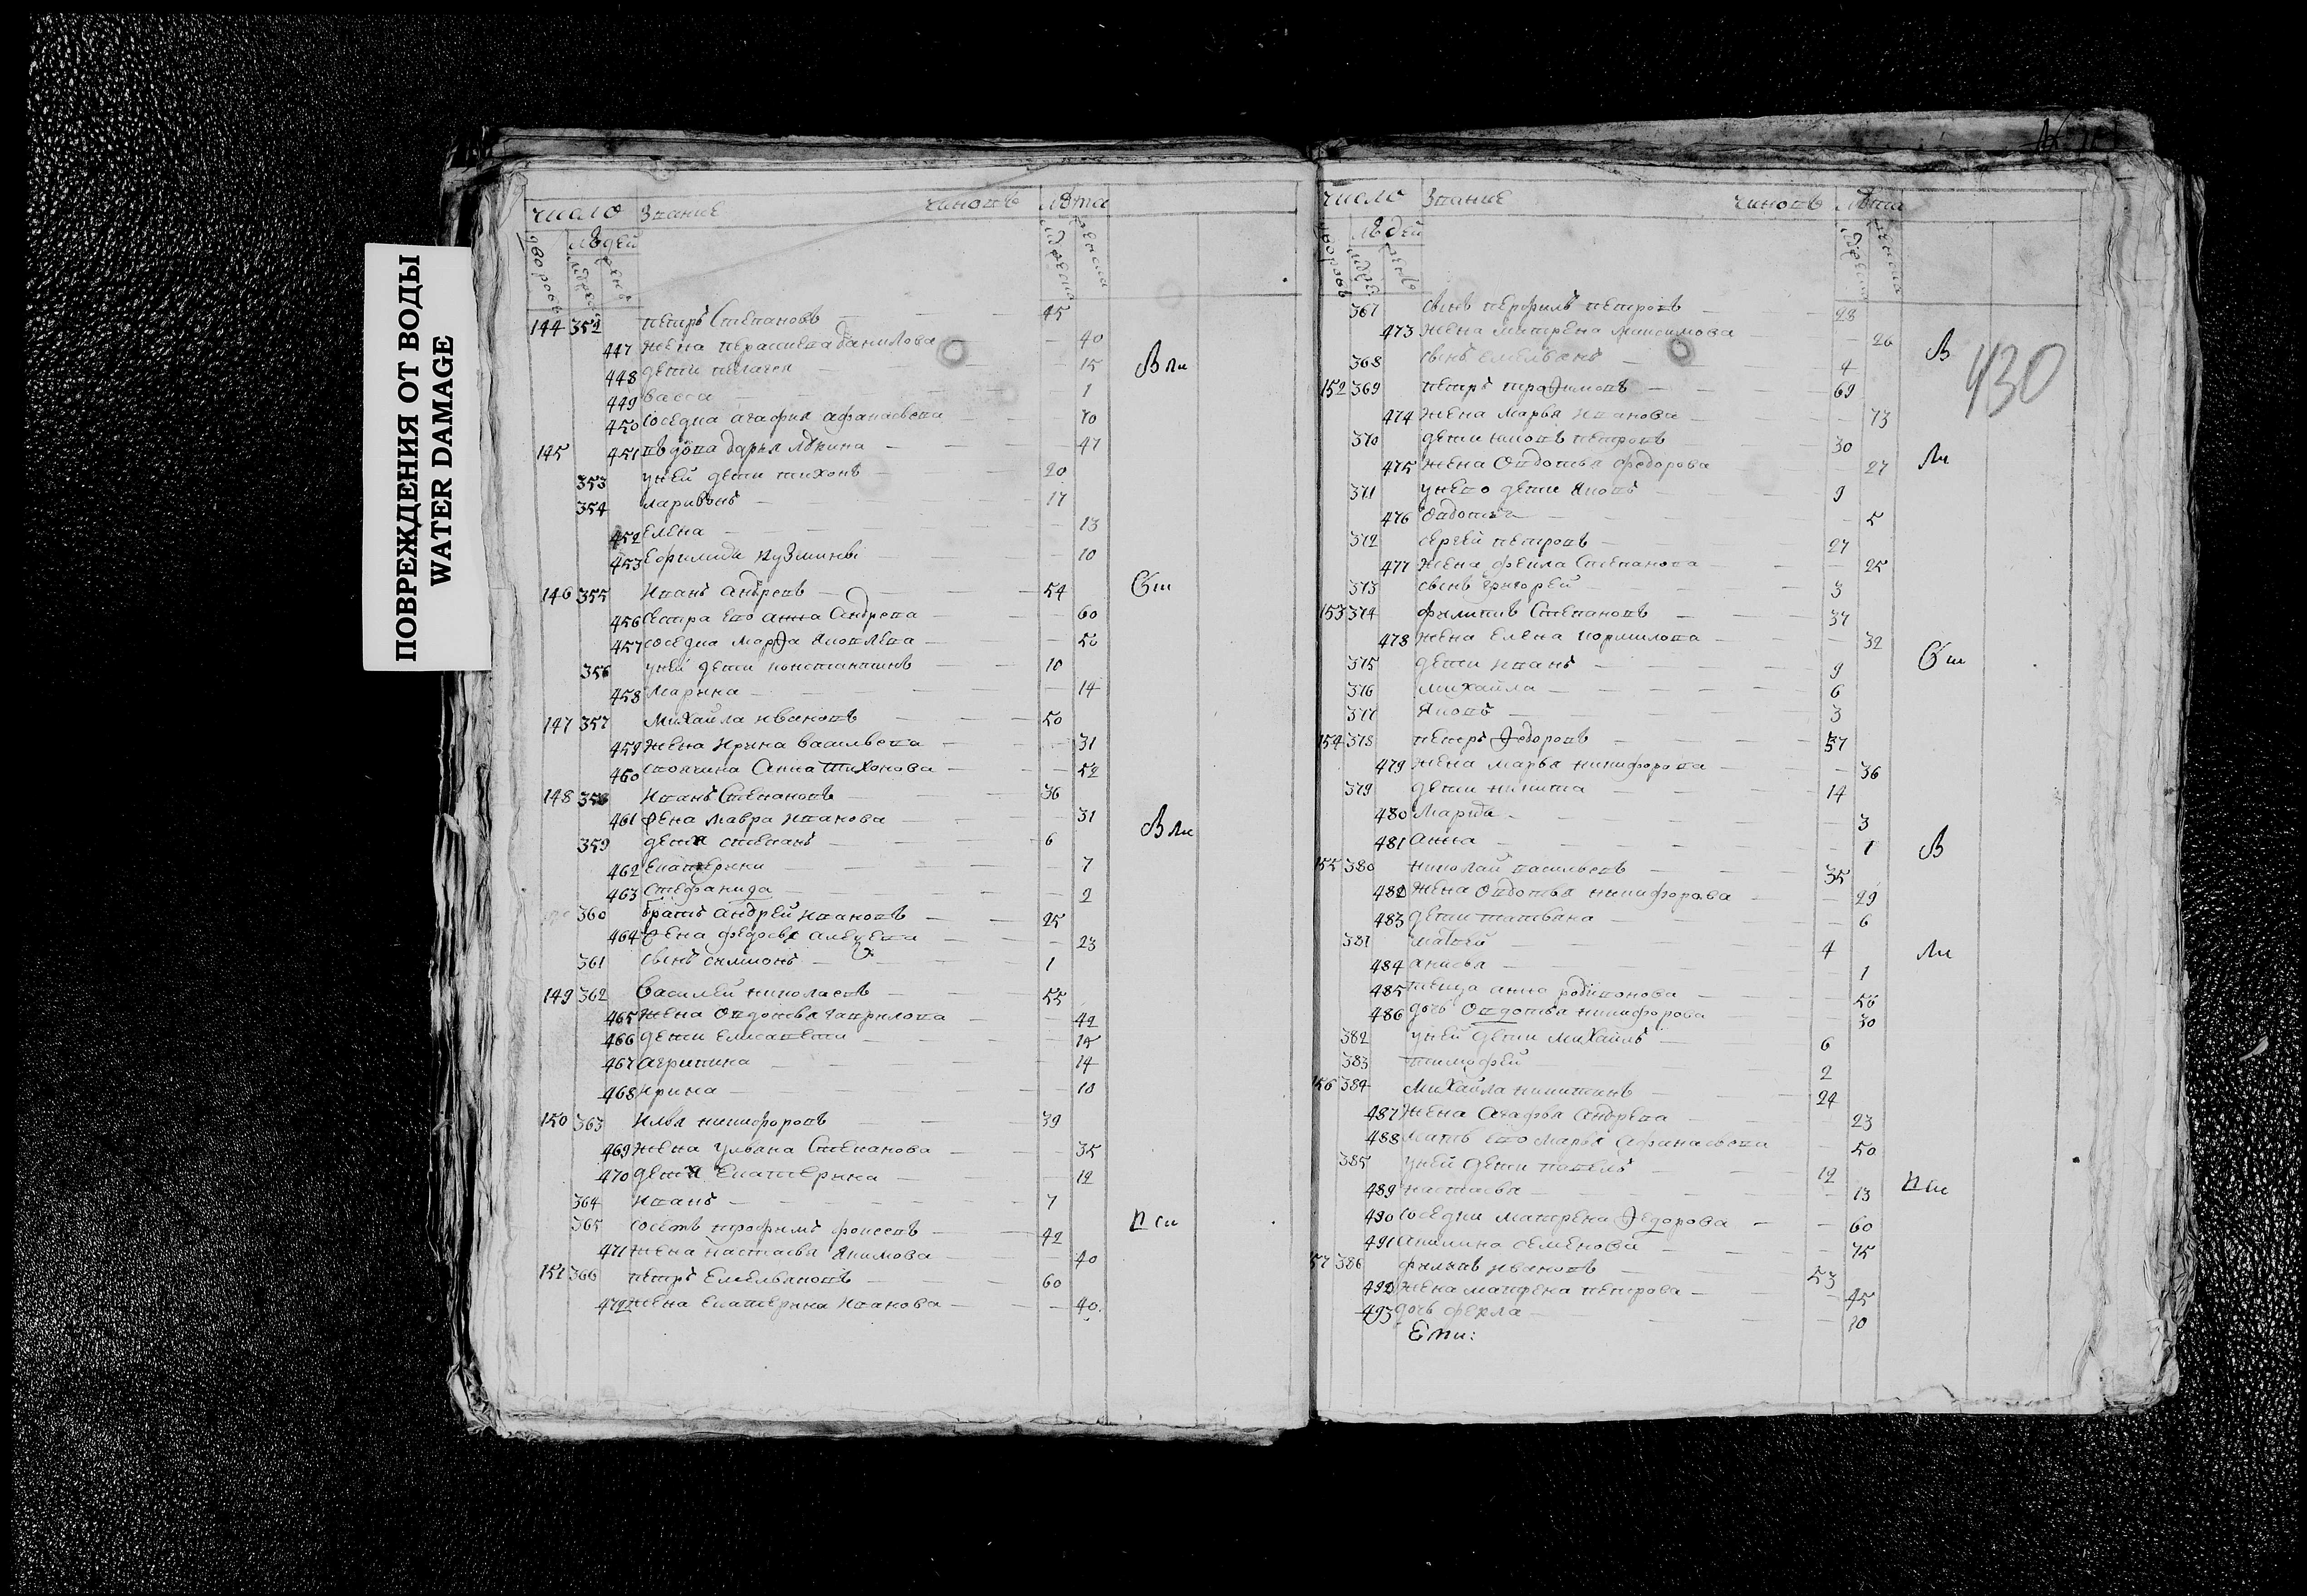 ПОВРЕЖДЕНИЯ ОТ ВОДЫ
WATER DAMAGE
число звание чиновъ лѣта
людей
дворовъ
144 352 петръ Степановъ 45
447 жена парасковья данилова 40
448 дети пелагея 15
449 васса 1
450 соседка агафия афанасьева 70
145 451 вдова дарья 47
353 у ней дети тихонъ 20
354 ларивонъ 17
452 Елена 13
453 кузмины 10
146 355 иванъ андреевъ 54
456 сестра ево анна андреева 60
457 соседка марѳа яковлева 50
356 у ней дети константинъ 10
458 марина 14
147 357 михайла ивановъ 50
459 жена ирина васильева 31
460 анна тихонова 52
148 358 иванъ степановъ 36
461 жена мавра иванова 31
359 дети степанъ 6
462 екатерина 7
463 стефанида 2
360 братъ андрей ивановъ 25
464 жена федосья 23
361 сынъ симионъ 1
149 362 василей николаевъ 55
465 жена овдотья гаврилова 42
466 дети елисавета 15
467 агрипина 14
468 ирина 10
150 363 илья никифоровъ 39
469 жена ульяна степанова 35
470 дети екатерина 12
364 иванъ 7
365 трофимъ 42
471 жена настасья якимова 40
151 366 петръ емельяновъ 60
472 жена екатерина иванова 40
В ли
Сти
В ли
П си
число звание чиновъ лѣта
людей
дворовъ
367 сынъ перфилъ петровъ 28
473 жена матрена максимова 26
368 сынъ емельянъ 4
152 369 петръ трофимовъ 69
474 жена марья иванова 73
370 дети петровъ 30
475 жена овдотья федорова 27
371 у нево дети яковъ 9
476 овдотья 5
372 сергей петровъ 27
477 жена фекла степанова 25
373 сынъ григорей 3
153 374 филипъ степановъ 37
478 жена елена кормилова 32
375 дети иванъ 9
376 михайла 6
377 яковъ 3
154 378 петръ ѳедоровъ 37
479 жена марья никифорова 36
379 дети никита 14
480 марѳа 3
481 анна 1
155 380 николай васильевъ 35
482 жена овдотья никифорова 29
483 дети татьяна 6
381 матвей 4
484 анисья 1
485 анна родионова 56
486 дочь овдотья никифорова 30
382 у ней дети михайлъ 6
383 тимофей 2
156 384 михайла никитинъ 24
487 жена агафья андреева 23
488 мать ево марья афанасьева 50
385 у ней дети павелъ 12
489 настасья 13
490 соседки матрена ѳедорова 60
491 акилина семенова 75
157 386 филипъ ивановъ 53
492 жена матрена петрова 45
493 дочь фекла 10
В
430
Ли
Сти
В
Ли
П си